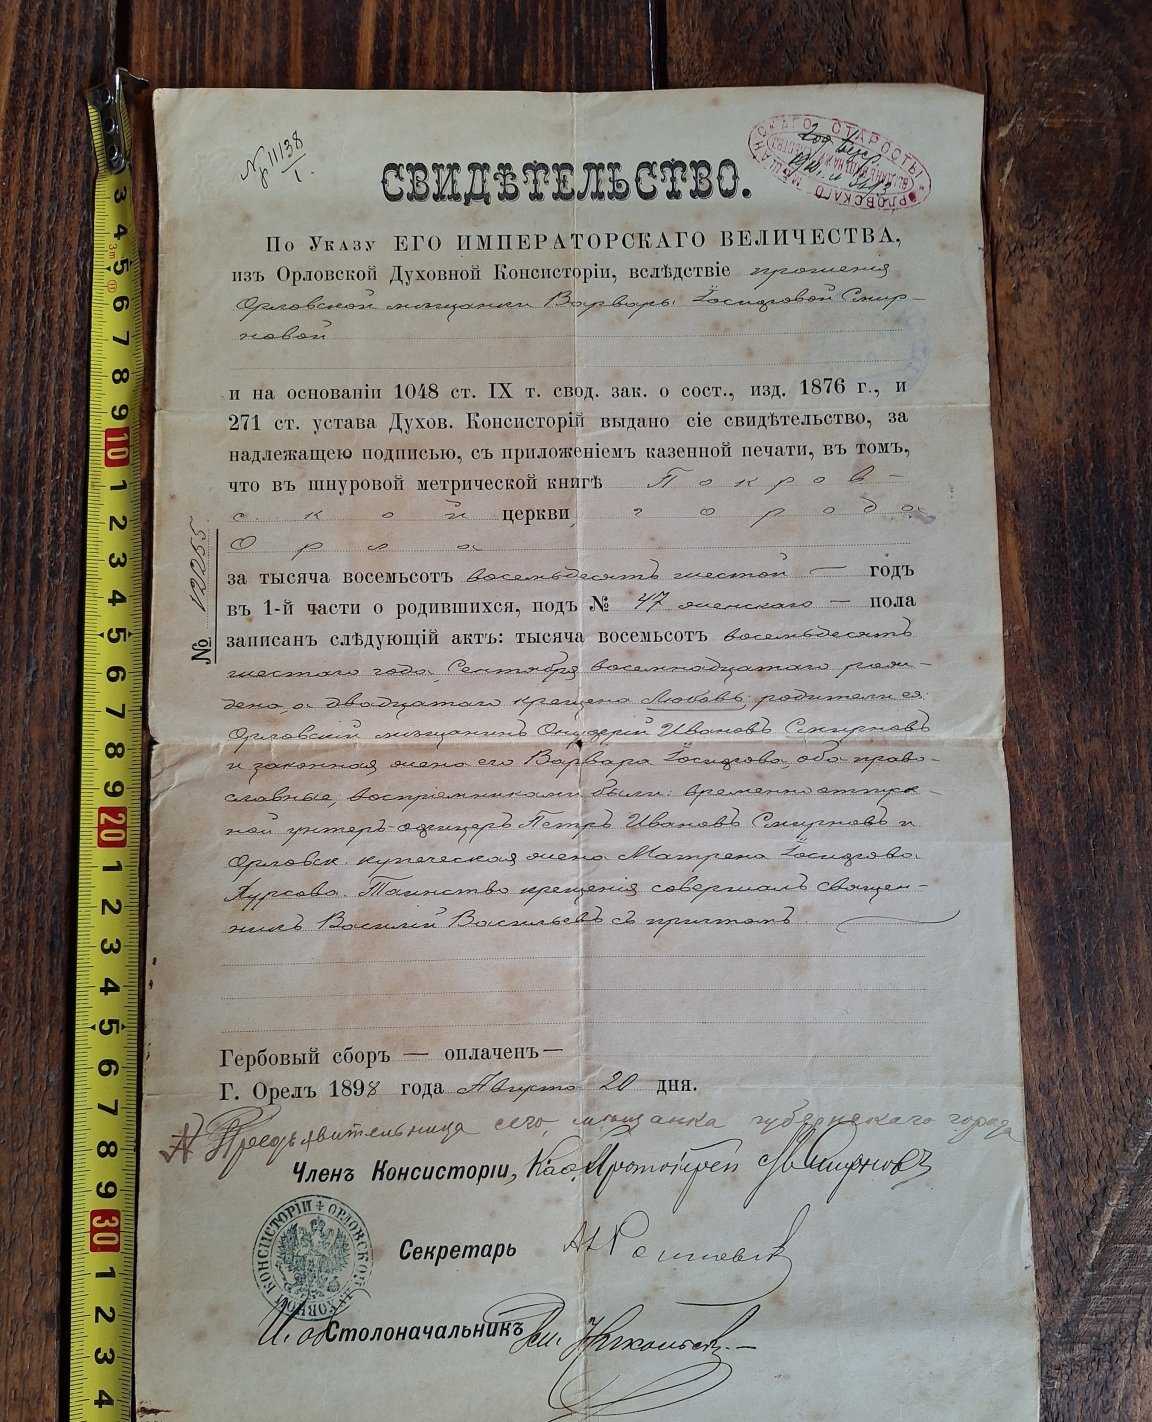 № 11138
I.
ОРЛОВСКАГО МѢЩАНСКАГО СТАРОСТЫ
СВИДѢТЕЛЬСТВО.
По Указу ЕГО ИМПЕРАТОРСКАГО ВЕЛИЧЕСТВА,
изъ Орловской Духовной Консисторіи, вслѣдствіе прошенія
Орловской мѣщанки Варвары Іосифовой Смир-
новой
и на основаніи 1048 ст. IX т. свод. зак. о сост., изд. 1876 г., и
271 ст. устава Духов. Консисторій выдано сіе свидѣтельство, за
надлежащею подписью, съ приложеніемъ казенной печати, въ томъ,
что въ шнуровой метрической книгѣ Покров-
ской церкви города
Орла
за тысяча восемьсотъ восемьдесятъ шестой — годъ
въ 1-й части о родившихся, подъ № 47 женскаго — пола
записанъ слѣдующій актъ: тысяча восемьсотъ восемьдесятъ
шестаго года Сентября восемнадцатаго рож-
дена, а двадцатаго крещена Любовь; родители ея:
Орловскій мѣщанинъ Иванов Смирновъ
и законная жена его Варвара Іосифова, оба право-
славные; воспріемниками были: временно отпуск-
ной унтеръ-офицеръ Петръ Ивановъ Смирновъ и
Орловск. купеческая жена Матрена Іосифова
Таинство крещенія совершалъ священ-
никъ Василій Васильевъ съ причтомъ.
№ 12255
Гербовый сборъ — оплаченъ —
Г. Орелъ 1898 года Августа 20 дня.
Предъявительница сего, мѣщанка губернскаго города
Членъ Консисторіи, Каѳ. Протоіерей Смирновъ
Секретарь
ОРЛОВСКОЙ ДУХОВНОЙ КОНСИСТОРІИ
И. об. Столоначальникъ